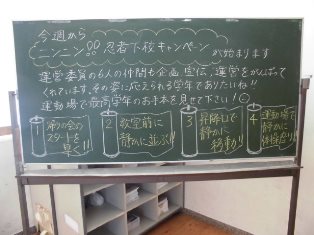 今週から
ニンニン!!忍者下校キャンペーン
が始まります
運営委員の6人の仲間も企画、宣伝、運営をがんばって
くれています。その姿に応えられる学年でありたいね!!
運動場で最高学年のお手本を見せて下さい!
1 帰りの会の
スタートを
早く!!
2 教室前に
静かに並ぶ!!
3 昇降口で
静かに
移動!!
4 運動場で
静かに
体操座り!!